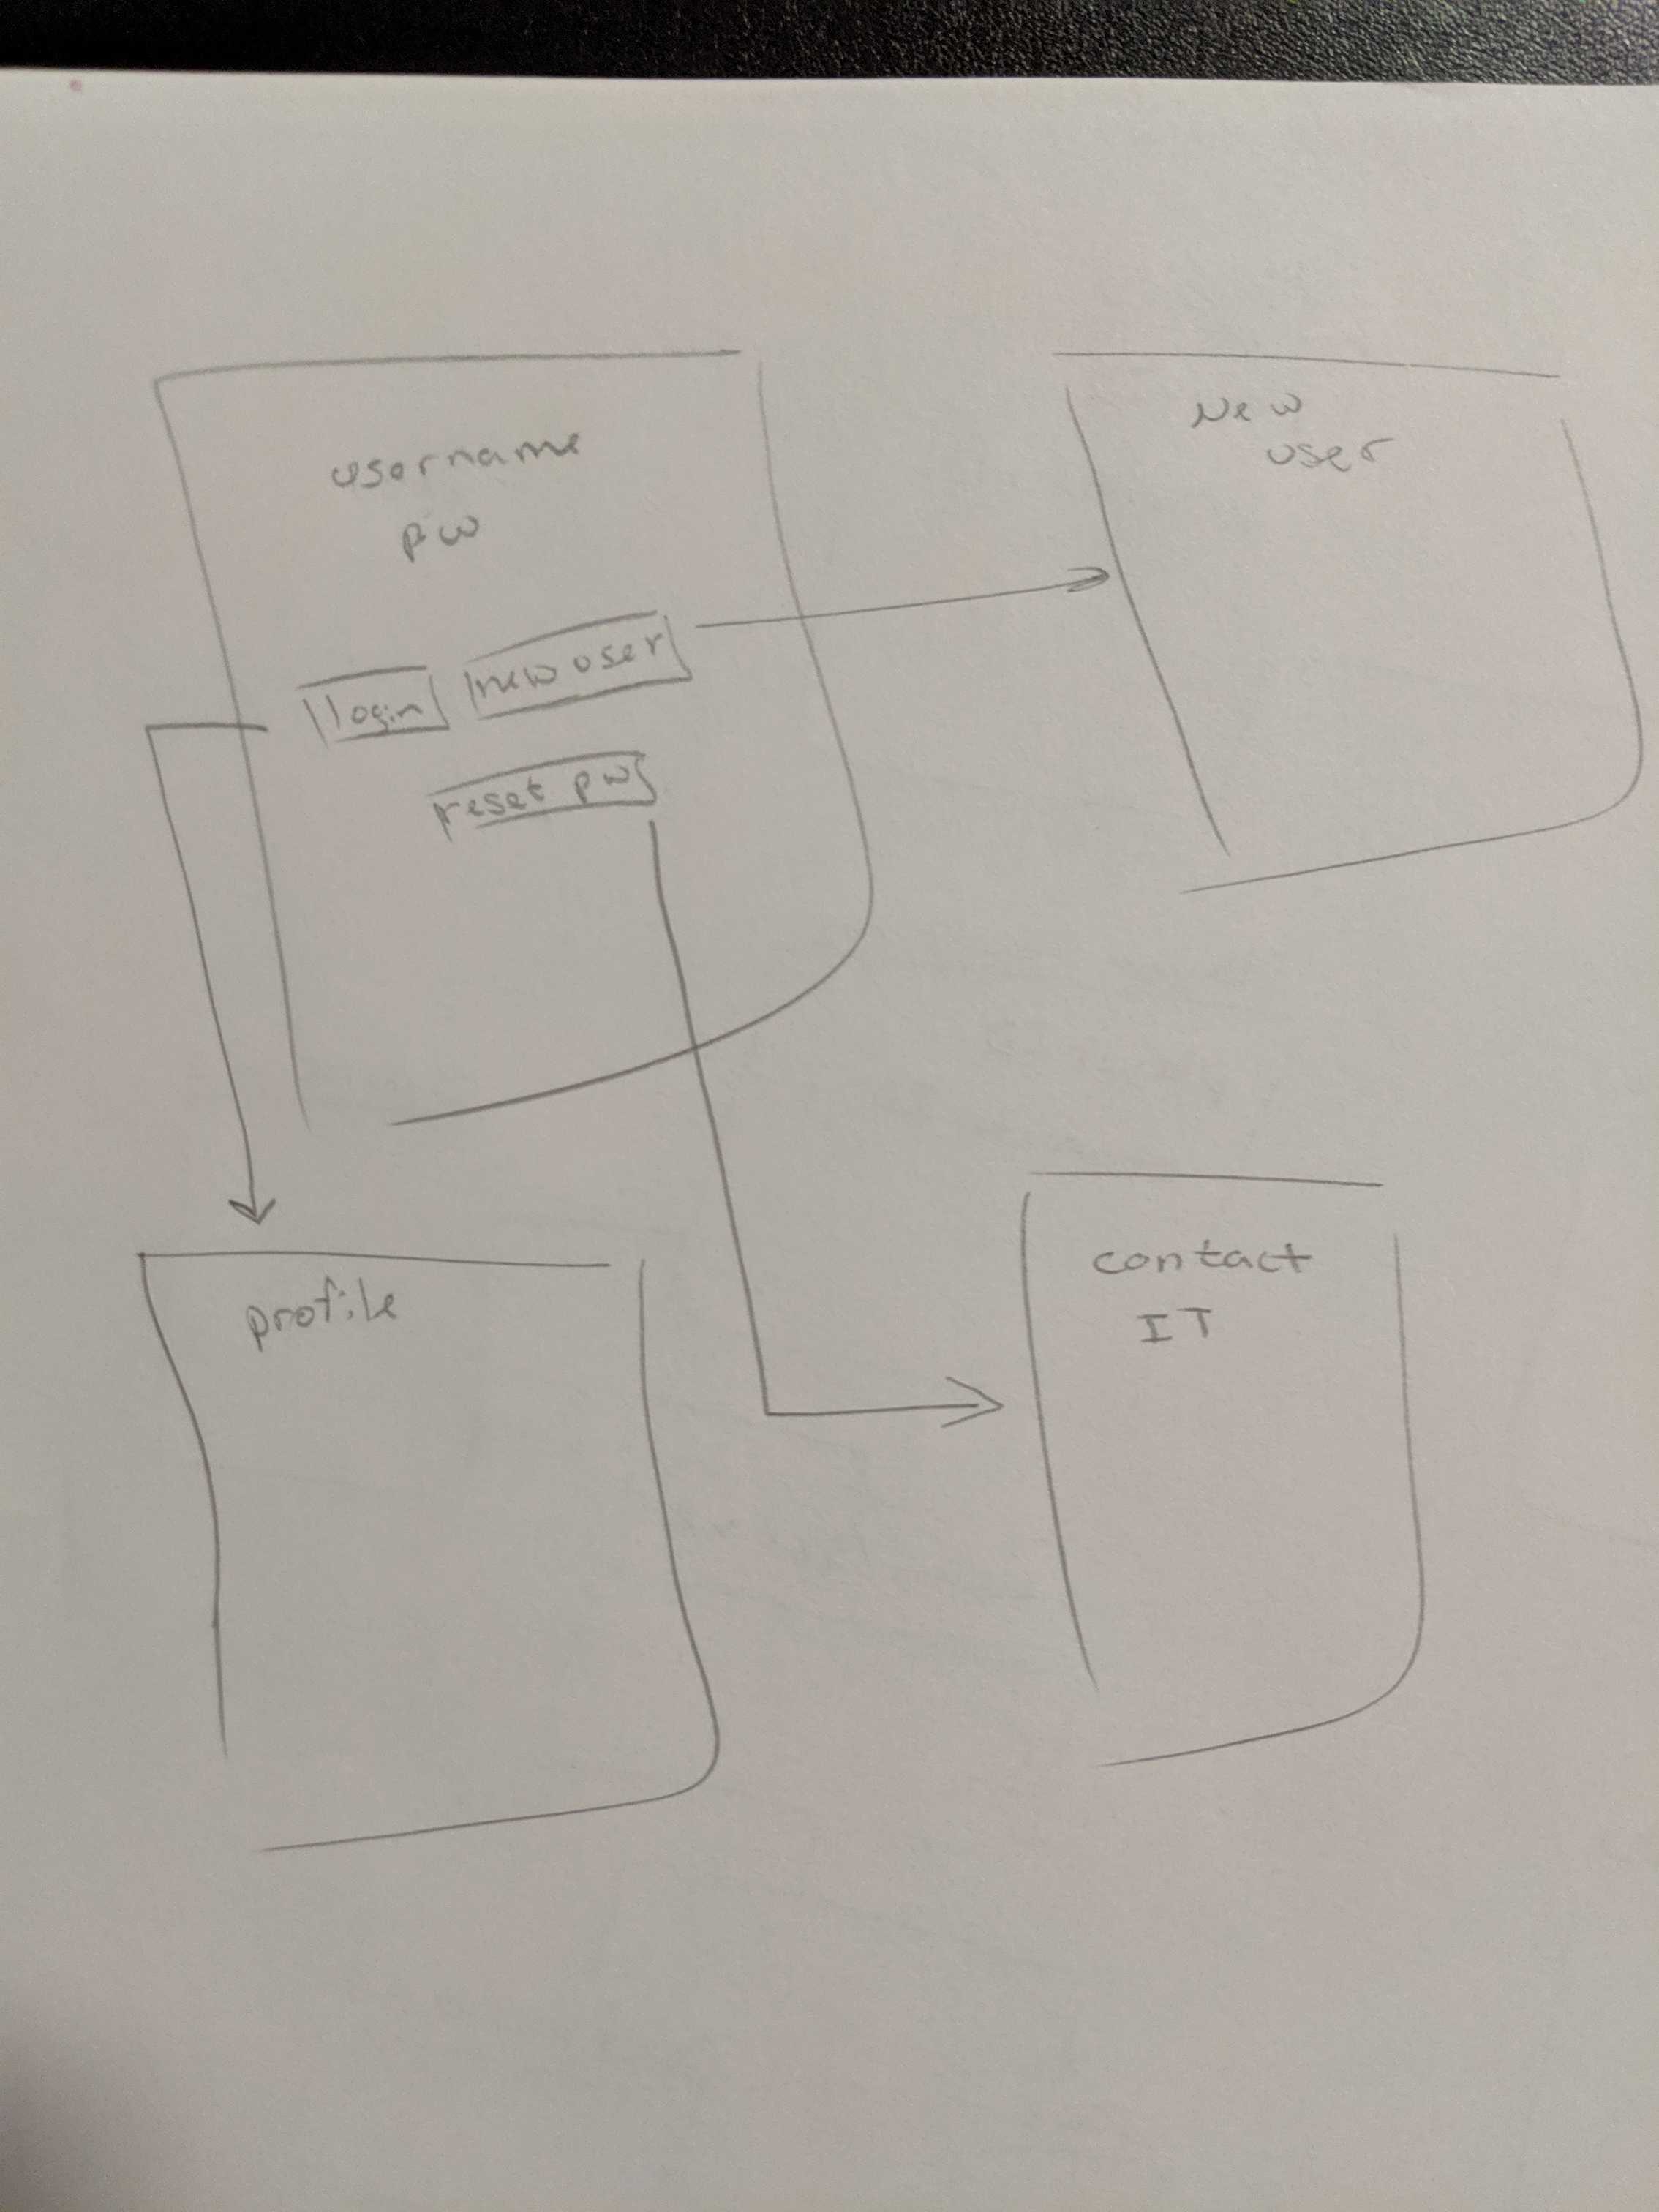 username
pw
login
new user
reset pw
New
user
profile
contact
IT